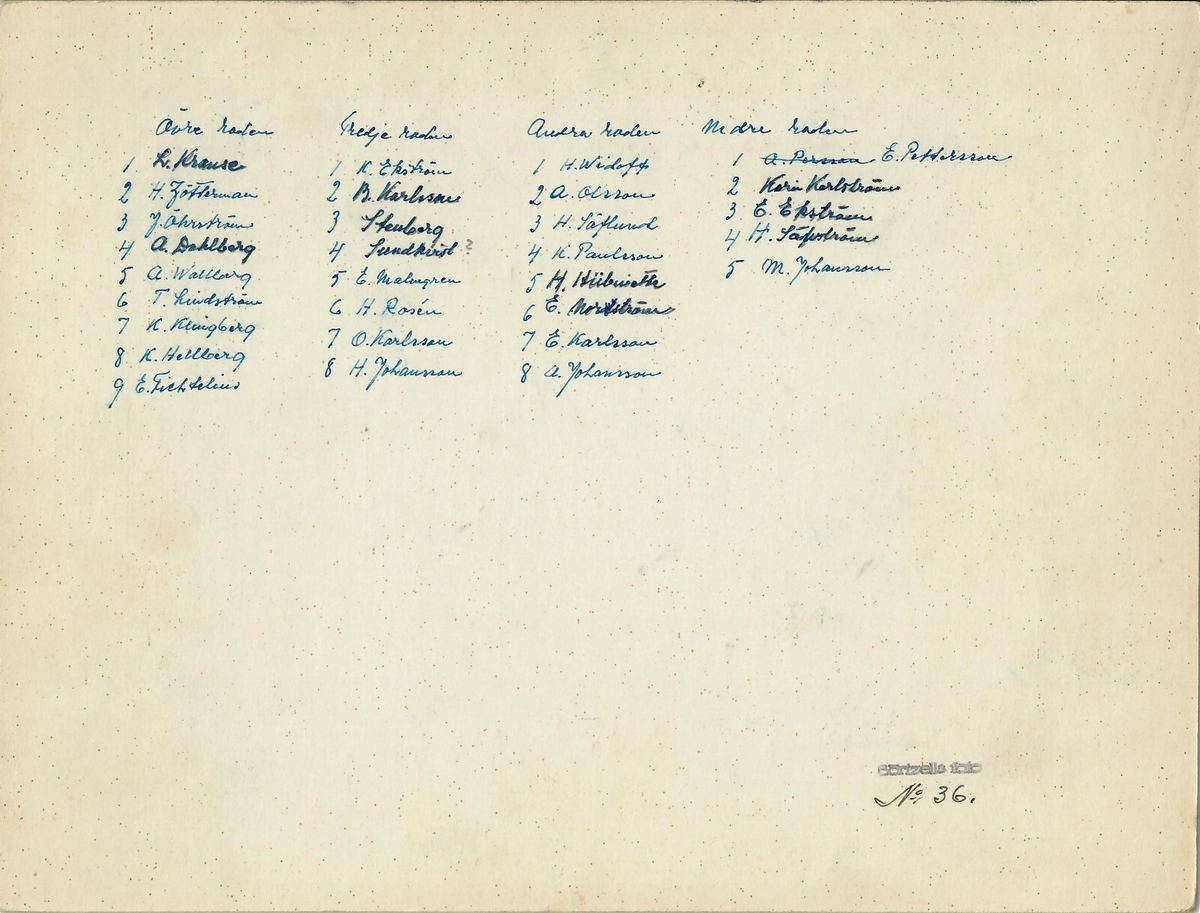 Övre raden
1 L. Krause
2 H. Zötterman
3 J. Öhrström
4 A. Dahlberg
5 A. Wallberg
6 T. Lindström
7 K. Klingberg
8 K. Hellberg
9 E. Fichtelius
Tredje raden
1 K. Ekström
2 B. Karlsson
3 Stenberg
4 Sundkvist ?
5 E. Malmgren
6 H. Rosén
7 O. Karlsson
8 H. Johansson
Andra raden
1 H. Widoff
2 A. Olsson
3 H. Säflund
4 K. Paulsson
5 H. Hübinette
6 E. Nordström
7 E. Karlsson
8 A. Johansson
Nedre raden
1 A. Persson E. Pettersson
2 Karin Karlström
3 E. Ekström
4 H. Säfström
5 M. Johansson
foto
No 36.